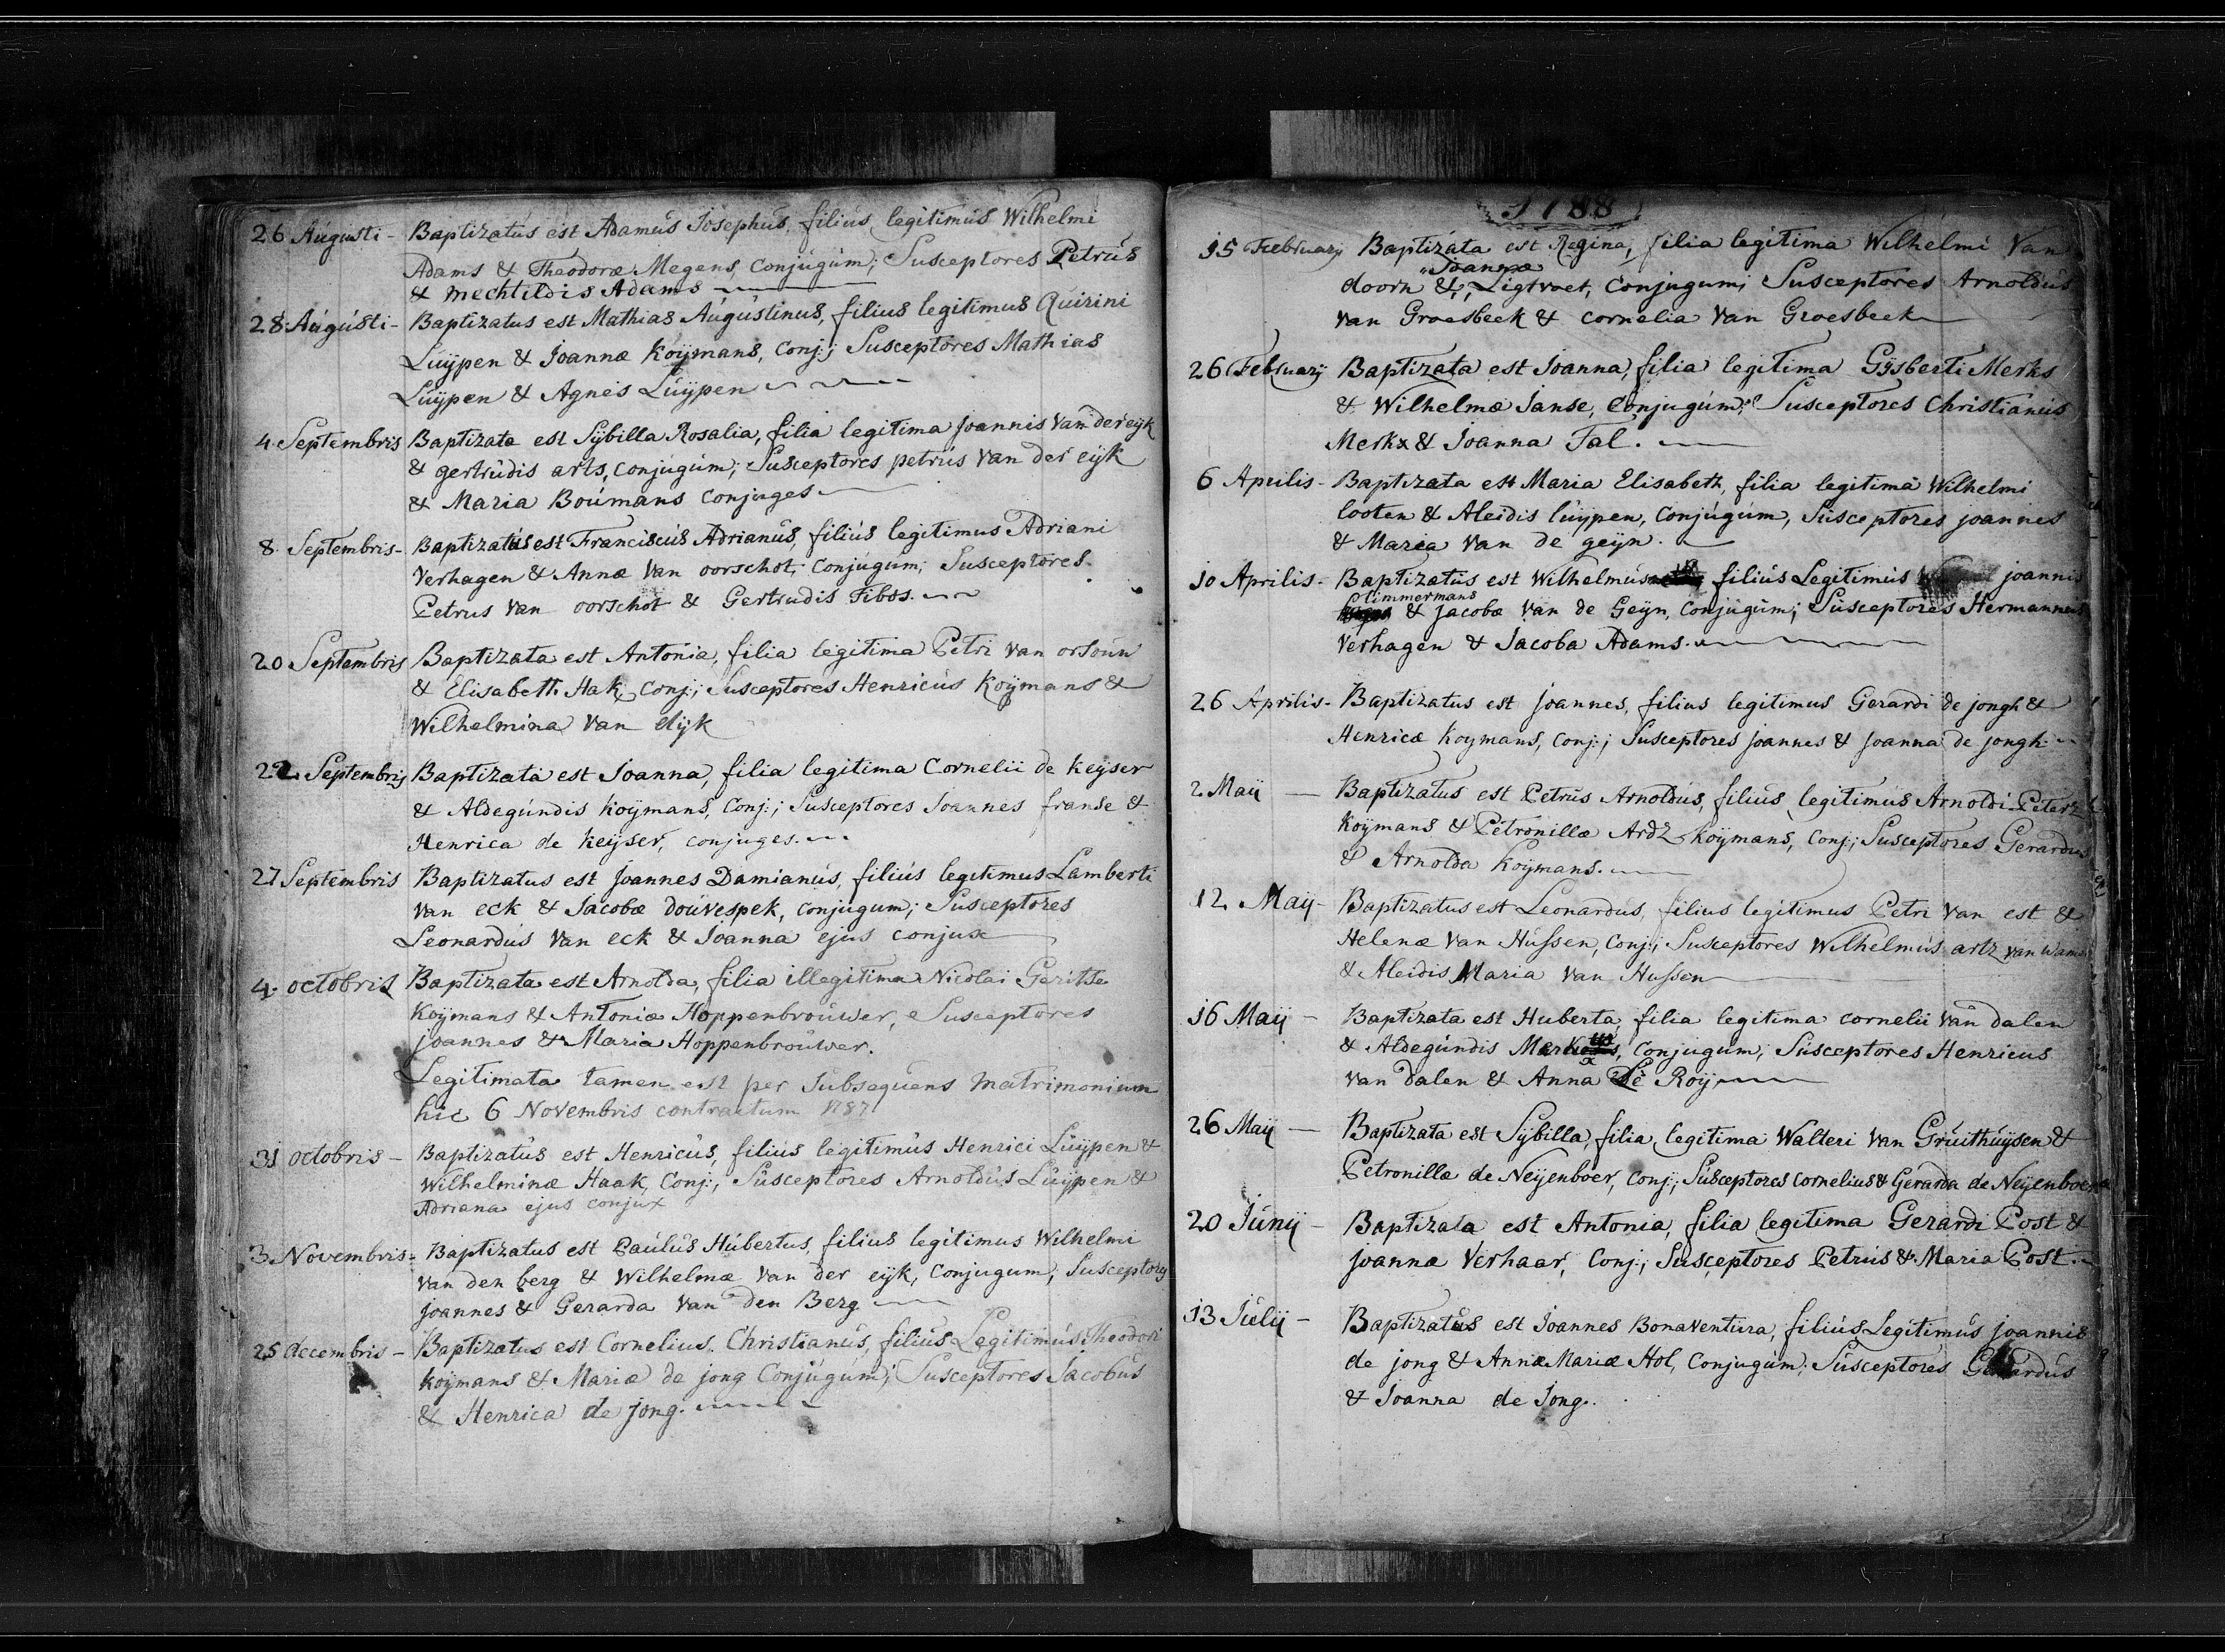 26 Augusti - Baptizatus est Adamus Josephus, filius legitimus Wilhelmi
Adams & Theodoræ Megens, conjugum; Susceptores Petrus
& Mechtildis Adams
28 Augusti - Baptizatus est Mathias Augustinus, filius legitimus Quirini
Luijpen & Joannæ Koijmans, conj:; Susceptores Mathias
Luijpen & Agnes Luijpen
4 Septembris Baptizata est Sijbilla Rosalia, filia legitima Joannis van der eijk
& gertrudis arts, conjugum; Susceptores petrus van der eijk
& Maria Boumans conjuges
8 Septembris - Baptizatus est Franciscus Adrianus, filius legitimus Adriani
Verhagen & Annæ van oorschot, conjugum; Susceptores
Petrus van oorschot & Gertrudis Fibos.
20 Septembris Baptizata est Antonia, filia legitima Petri van orsoun
& Elisabeth Hak, conj:; Susceptores Henricus Koijmans &
Wilhelmina van dijk
22 Septembris Baptizata est Joanna, filia legitima Cornelii de Keijser
& Aldegundis Koijmans, Conj:; Susceptores Joannes franse &
Henrica de Keijser, conjuges.
27 Septembris Baptizatus est Joannes Damianus, filius legitimus Lamberti
van eck & Jacobæ douvespek, conjugum; Susceptores
Leonardus van eck & Joanna ejus conjux
4 octobris Baptizata est Arnolda, filia illegitima Nicolai Geritse
Koijmans & Antoniæ Hoppenbrouwer, Susceptores
Joannes & Maria Hoppenbrouwer.
Legitimata tamen est per subsequens matrimonium
hic 6 Novembris contractum 1787
31 octobris - Baptizatus est Henricus, filius legitimus Henrici Luijpen &
Wilhelminæ Haak, Conj:, Susceptores Arnoldus Luijpen &
Adriana ejus conjux
3 Novembris - Baptizatus est Paulus Hubertus, filius legitimus Wilhelmi
van den berg & Wilhelmæ van der eijk, conjugum, Susceptores
Joannes & Gerarda van den Berg
25 decembris - Baptizatus est Cornelius Christianus, filius Legitimus Theodori
Koijmans & Mariæ de jong Conjugum; Susceptores Jacobus
& Henrica de jong.
1788
15 Februarij Baptizata est Regina, filia legitima Wilhelmi Van
Joannæ
doorn & Ligtvoet, conjugum; Susceptores Arnoldus
van Groesbeek & cornelia van Groesbeek
26 Februarij Baptizata est Joanna, filia legitima Gijsberti Merks
& Wilhelmæ Janse, Conjugum; Susceptores Christianus
Merkx & Joanna Tal.
6 Aprilis - Baptizata est Maria Elisabeth, filia legitima Wilhelmi
looten & Aleidis luijpen, Conjugum, Susceptores joannes
& Maria van de geijn.
10 Aprilis - Baptizatus est Wilhelmus filius Legitimus joannis
Timmermans
& Jacobæ van de Geijn, conjugum; Susceptores Hermannus
Verhagen & Jacoba Adams.
26 Aprilis - Baptizatus est Joannes, filius legitimus Gerardi de jongh &
Henricæ Koymans, conj:; Susceptores joannes & Joanna de jongh.
2 Maij — Baptizatus est Petrus Arnoldus, filius legitimus Arnoldi Peterz
Koijmans & Petronillæ Ardz Koijmans, conj:; Susceptores Gerardus
& Arnolda Koijmans.
12 Maij - Baptizatus est Leonardus, filius legitimus Petri van est &
Helenæ van Hussen, conj:; Susceptores Wilhelmus artz van wamel
& Aleidis Maria van Hussen
16 Maij - Baptizata est Huberta, filia legitima cornelii van dalen
& Aldegundis Merkx, conjugum; Susceptores Henricus
van Dalen & Anna Le Roij
26 Maij - Baptizata est Sijbilla, filia legitima Walteri van Gruithuijsen &
Petronillæ de Neijenboer, conj:; Susceptores cornelius & Gerarda de Neijenboer
20 Junij - Baptizata est Antonia, filia legitima Gerardi Post &
joannæ Verhaar, Conj:; Susceptores Petrus & Maria Post.
13 Julij - Baptizatus est Joannes Bonaventura, filius Legitimus joannis
de jong & Annæ Mariæ Hol, conjugum; Susceptores Gerardus
& Joanna de Jong.